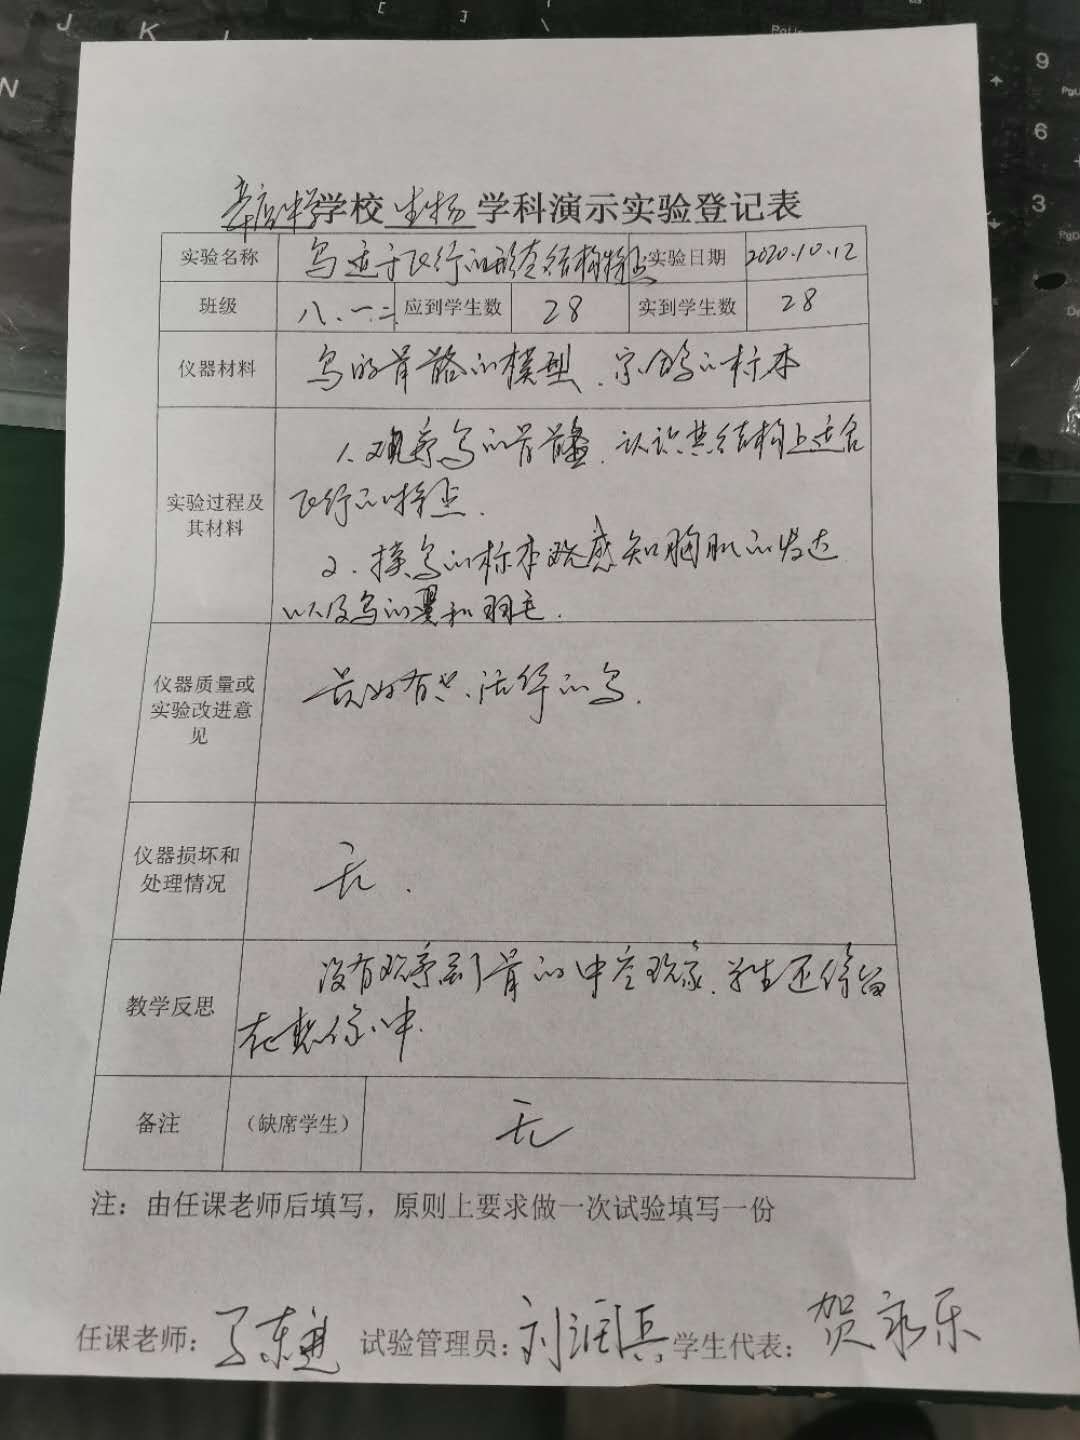 辛店中学学校 生物 学科演示实验登记表
实验名称 鸟适于飞行的形态结构特点 实验日期 2020.10.12
班级 八.一.二 应到学生数 28 实到学生数 28
仪器材料 鸟的骨骼的模型、家鸽的标本
实验过程及其材料
1.观察鸟的骨骼,认识其结构上适合
飞行的特点.
2.摸鸟的标本 感知胸肌的发达
以及鸟的翼和羽毛.
仪器质量或
实验改进意
见
最好有只 的鸟.
仪器损坏和
处理情况
无.
教学反思
没有观察到骨的中空现象,学生还停留
在想像中.
备注 (缺席学生) 无
注：由任课老师后填写，原则上要求做一次试验填写一份
任课老师： 试验管理员：刘润兵 学生代表：贺永乐
J
K
L
N
[
]
9
6
3